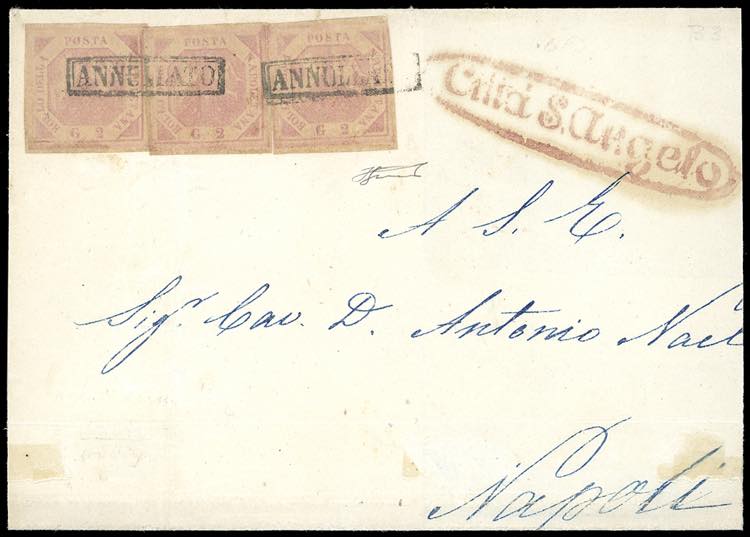 POSTA POSTA POSTA
BOLLO DELLA
G 2 G 2 G 2
ANNULLATO ANNULLAT
Città S. Angelo
A S. E.
Sigr. Cav. D. Antonio
Napoli